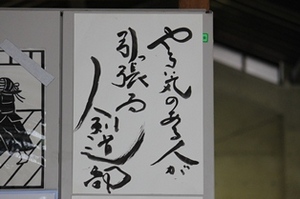 やる気のある人が
引張る
人剣道部